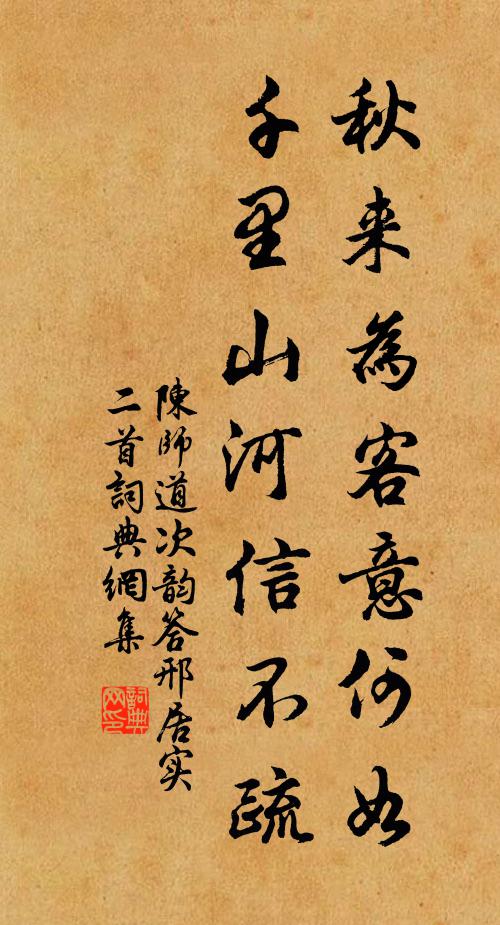 秋来為客意何如
千里山河信不疏
陳師道次韵答邢居实
二首詞典網集
詞典
网印